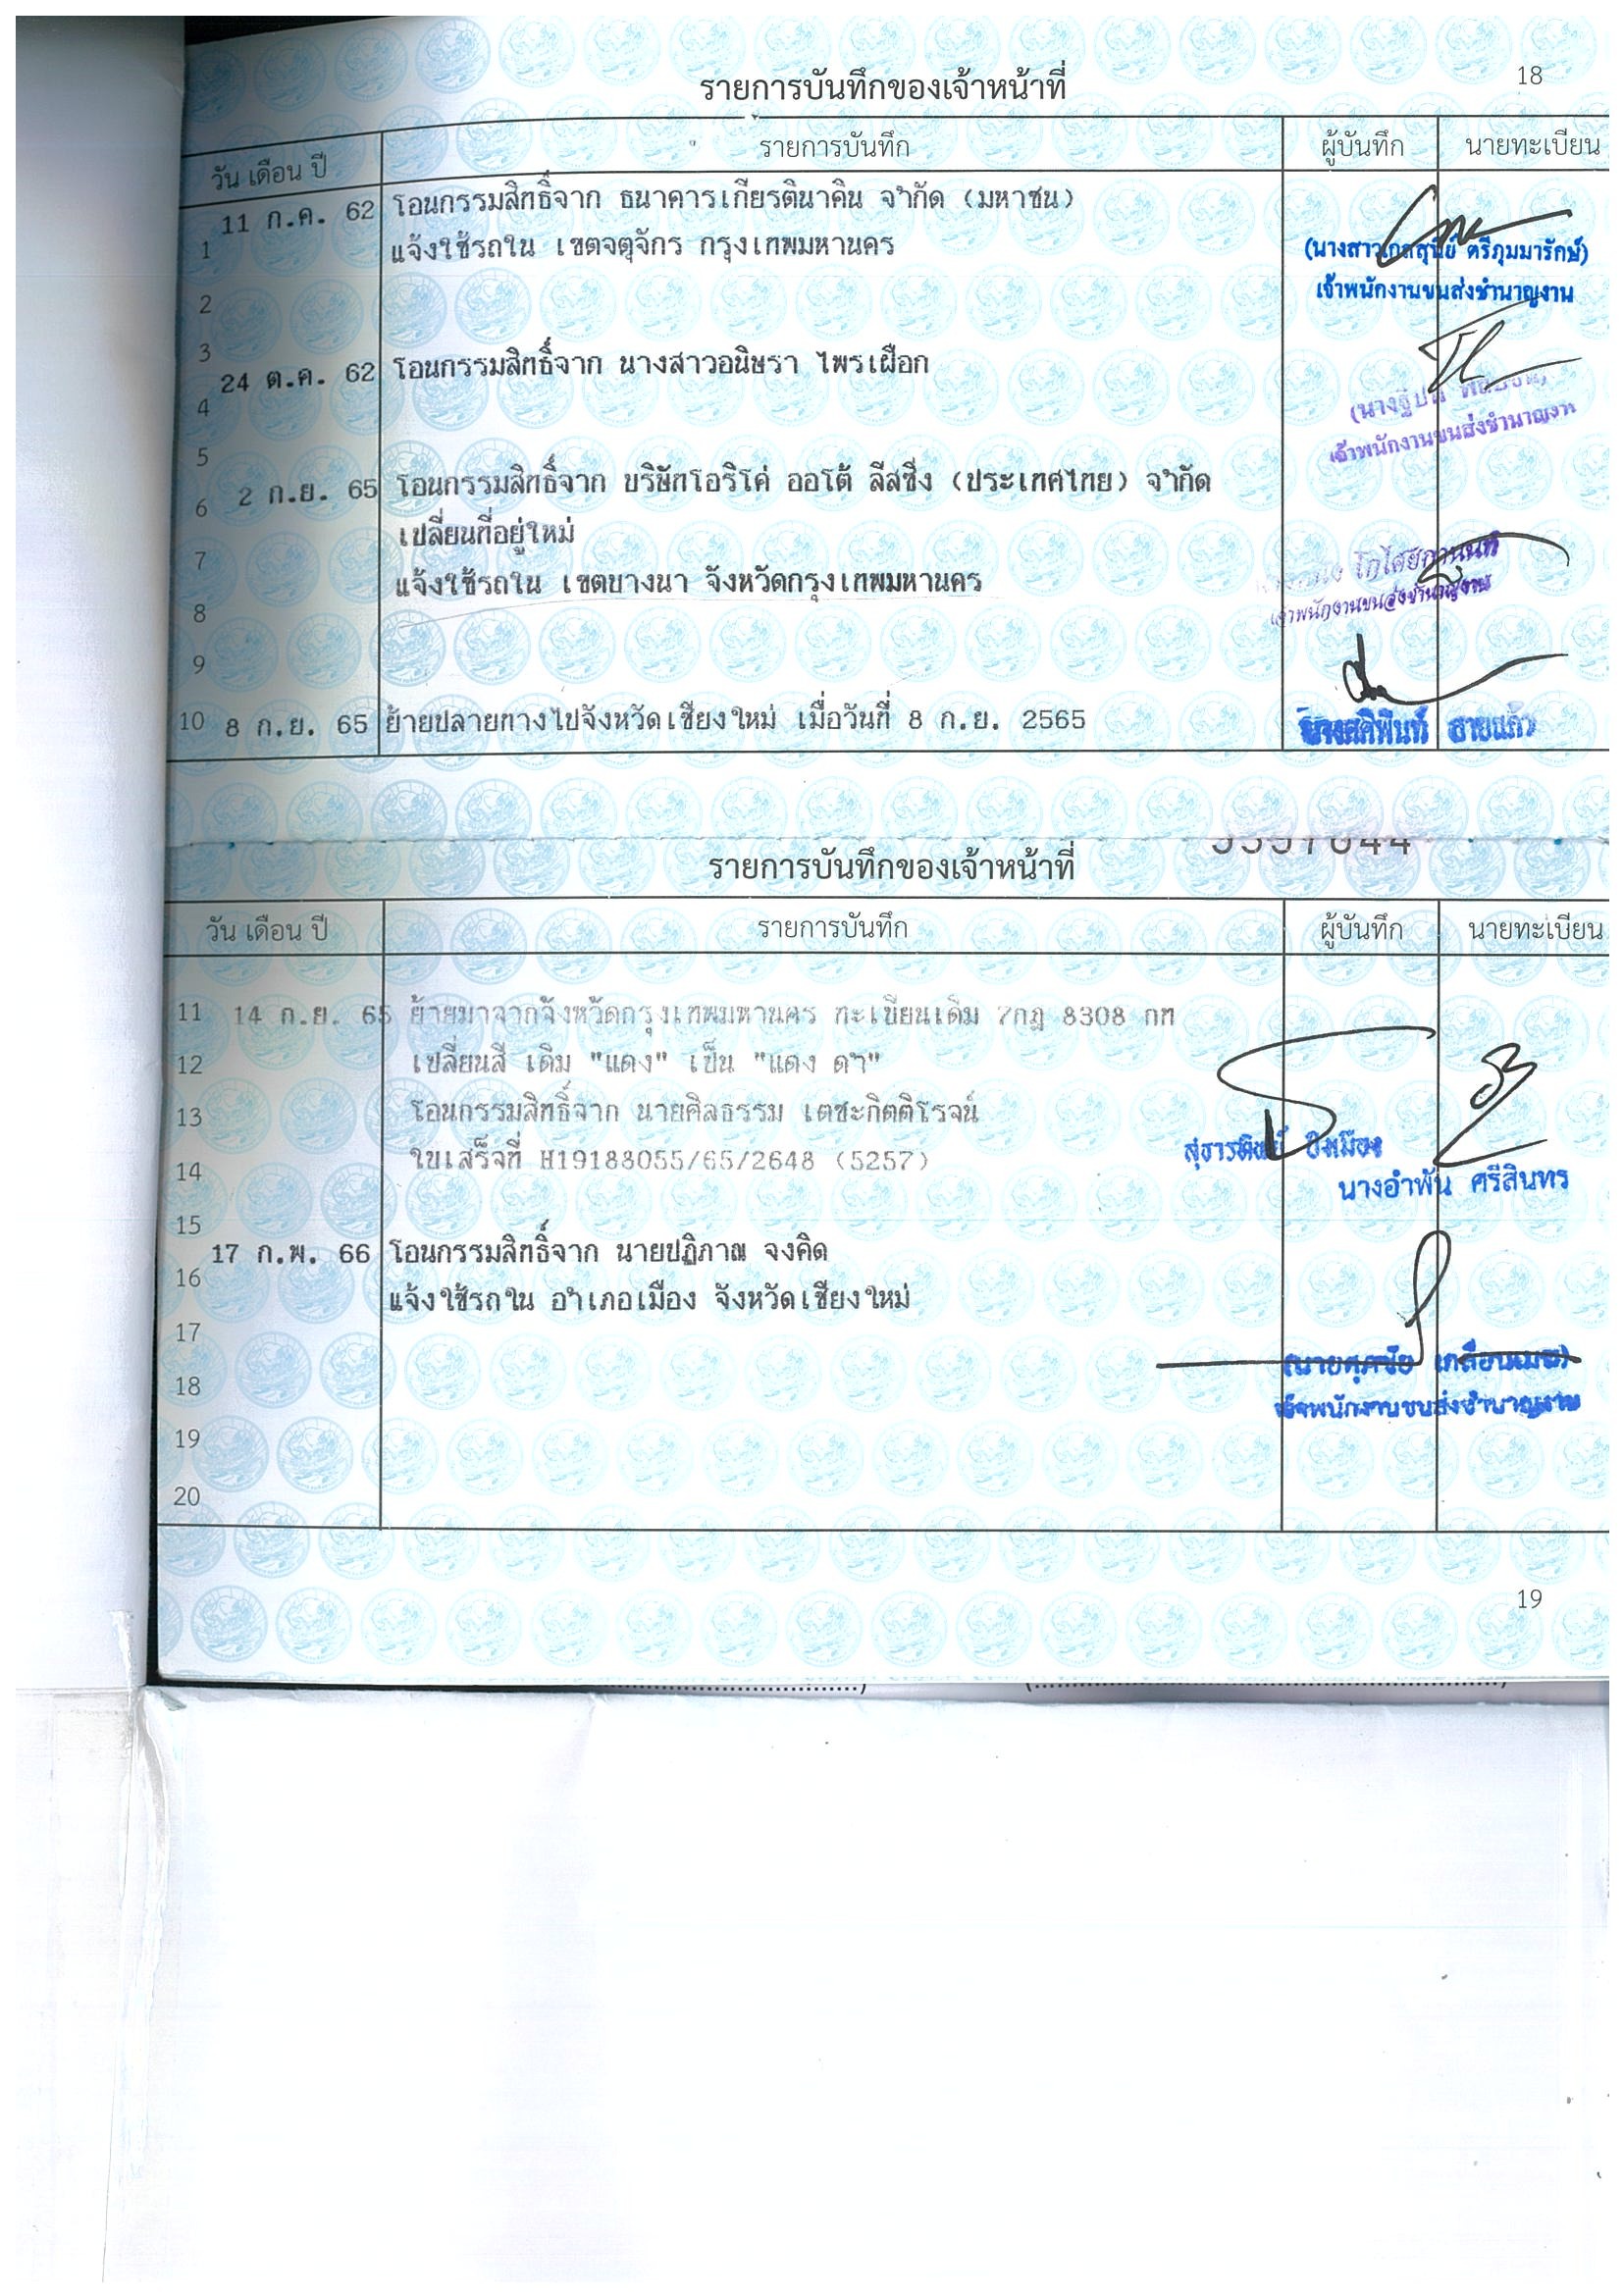 18
รายการบันทึกของเจ้าหน้าที่
วัน เดือน ปี รายการบันทึก ผู้บันทึก นายทะเบียน
1 11 ก.ค. 62 โอนกรรมสิทธิ์จาก ธนาคารเกียรตินาคิน จำกัด (มหาชน)
แจ้งใช้รถใน เขตจตุจักร กรุงเทพมหานคร
ตรีภุมมารักษ์)
เจ้าพนักงานขนส่งชำนาญงาน
2
3
24 ต.ค. 62 โอนกรรมสิทธิ์จาก นางสาวอนิษรา ไพรเผือก
4
เจ้าพนักงานขนส่งชำนาญงาน
5
6 2 ก.ย. 65 โอนกรรมสิทธิ์จาก บริษัทโอริโค่ ออโต้ ลีสซิ่ง (ประเทศไทย) จำกัด
เปลี่ยนที่อยู่ใหม่
7
แจ้งใช้รถใน เขตบางนา จังหวัดกรุงเทพมหานคร
เจ้าพนักงานขนส่งชำนาญงาน
8
9
10 8 ก.ย. 65 ย้ายปลายทางไปจังหวัดเชียงใหม่ เมื่อวันที่ 8 ก.ย. 2565
สายแก้ว
รายการบันทึกของเจ้าหน้าที่
วัน เดือน ปี รายการบันทึก ผู้บันทึก นายทะเบียน
11 14 ก.ย. 65 ย้ายมาจากจังหวัดกรุงเทพมหานคร ทะเบียนเดิม 7กฎ 8308 กท
12 เปลี่ยนสี เดิม "แดง" เป็น "แดง ดำ"
13 โอนกรรมสิทธิ์จาก นายศิลธรรม เตชะกิตติโรจน์
14 ใบเสร็จที่ H19188055/65/2648 (5257)
นางอำพัน ศรีสินทร
15
17 ก.พ. 66 โอนกรรมสิทธิ์จาก นายปฏิภาณ จงคิด
16 แจ้งใช้รถใน อำเภอเมือง จังหวัดเชียงใหม่
17
18
เจ้าพนักงานขนส่งชำนาญงาน
19
20
19